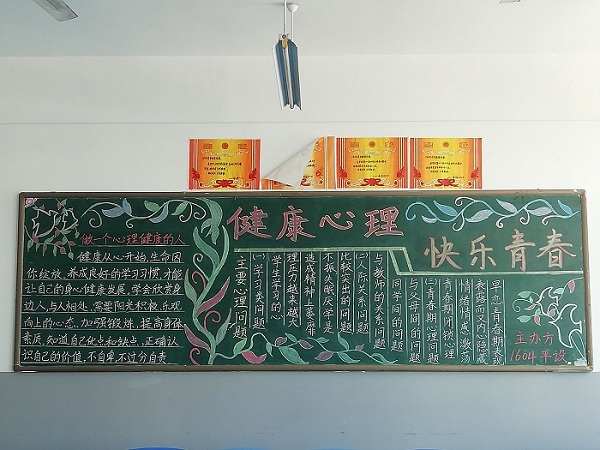 健康心理
快乐青春
做一个心理健康的人
健康从心开始,生命因
你绽放.养成良好的学习习惯,才能
让自己的身心健康发展,学会欣赏身
边人,与人相处,需要阳光积极,乐观
向上的心态,加强锻炼,提高身体
素质,知道自己优点和缺点,正确认
识自己的价值,不自卑不过分自责
主要心理问题
(一)学习类问题
学生学习的心
理压力越来越大
造成精神上萎靡
不振失眠厌学是
比较突出的问题
(二)人际关系问题
与教师的关系问题
同学间的问题
与父母间的问题
(三)青春期心理问题
青春期闭锁心理
情绪情感激荡
表露而又内心隐藏
早恋青春期表或
主办方
1604平设